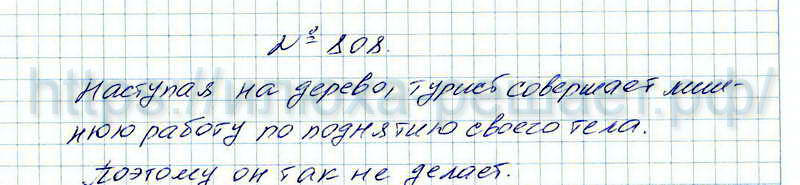 № 808.
Наступая на дерево, турист совершает лиш-
нюю работу по поднятию своего тела.
Поэтому он так не делает.